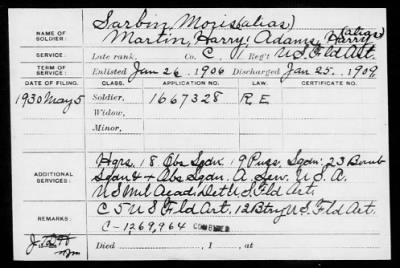 Sarbin Moris (alias)
NAME OF SOLDIER: Martin, Harry; Adams, Harry (alias)
SERVICE: Late rank, Co. C, Reg't U.S. Fld Art.
TERM OF SERVICE: Enlisted Jan 26, 1906 Discharged Jan 25, 1909
DATE OF FILING. CLASS. APPLICATION NO. LAW. CERTIFICATE NO.
1930 May 5 Soldier, 1667328 R E
Widow,
Minor,
ADDITIONAL SERVICES: Hqrs. 18 Obs Sqdn. 19 Purs. Sqdn. 23 Bomb
Sqdn 4 Obs Sqdn. A Ser. U.S.A.
U S Mil Acad. Detch. Fld Art.
REMARKS: C 5 U S Fld Art. 12 Btry U.S. Fld Art.
C-1269,964 COMBINED
Died , 1 , at